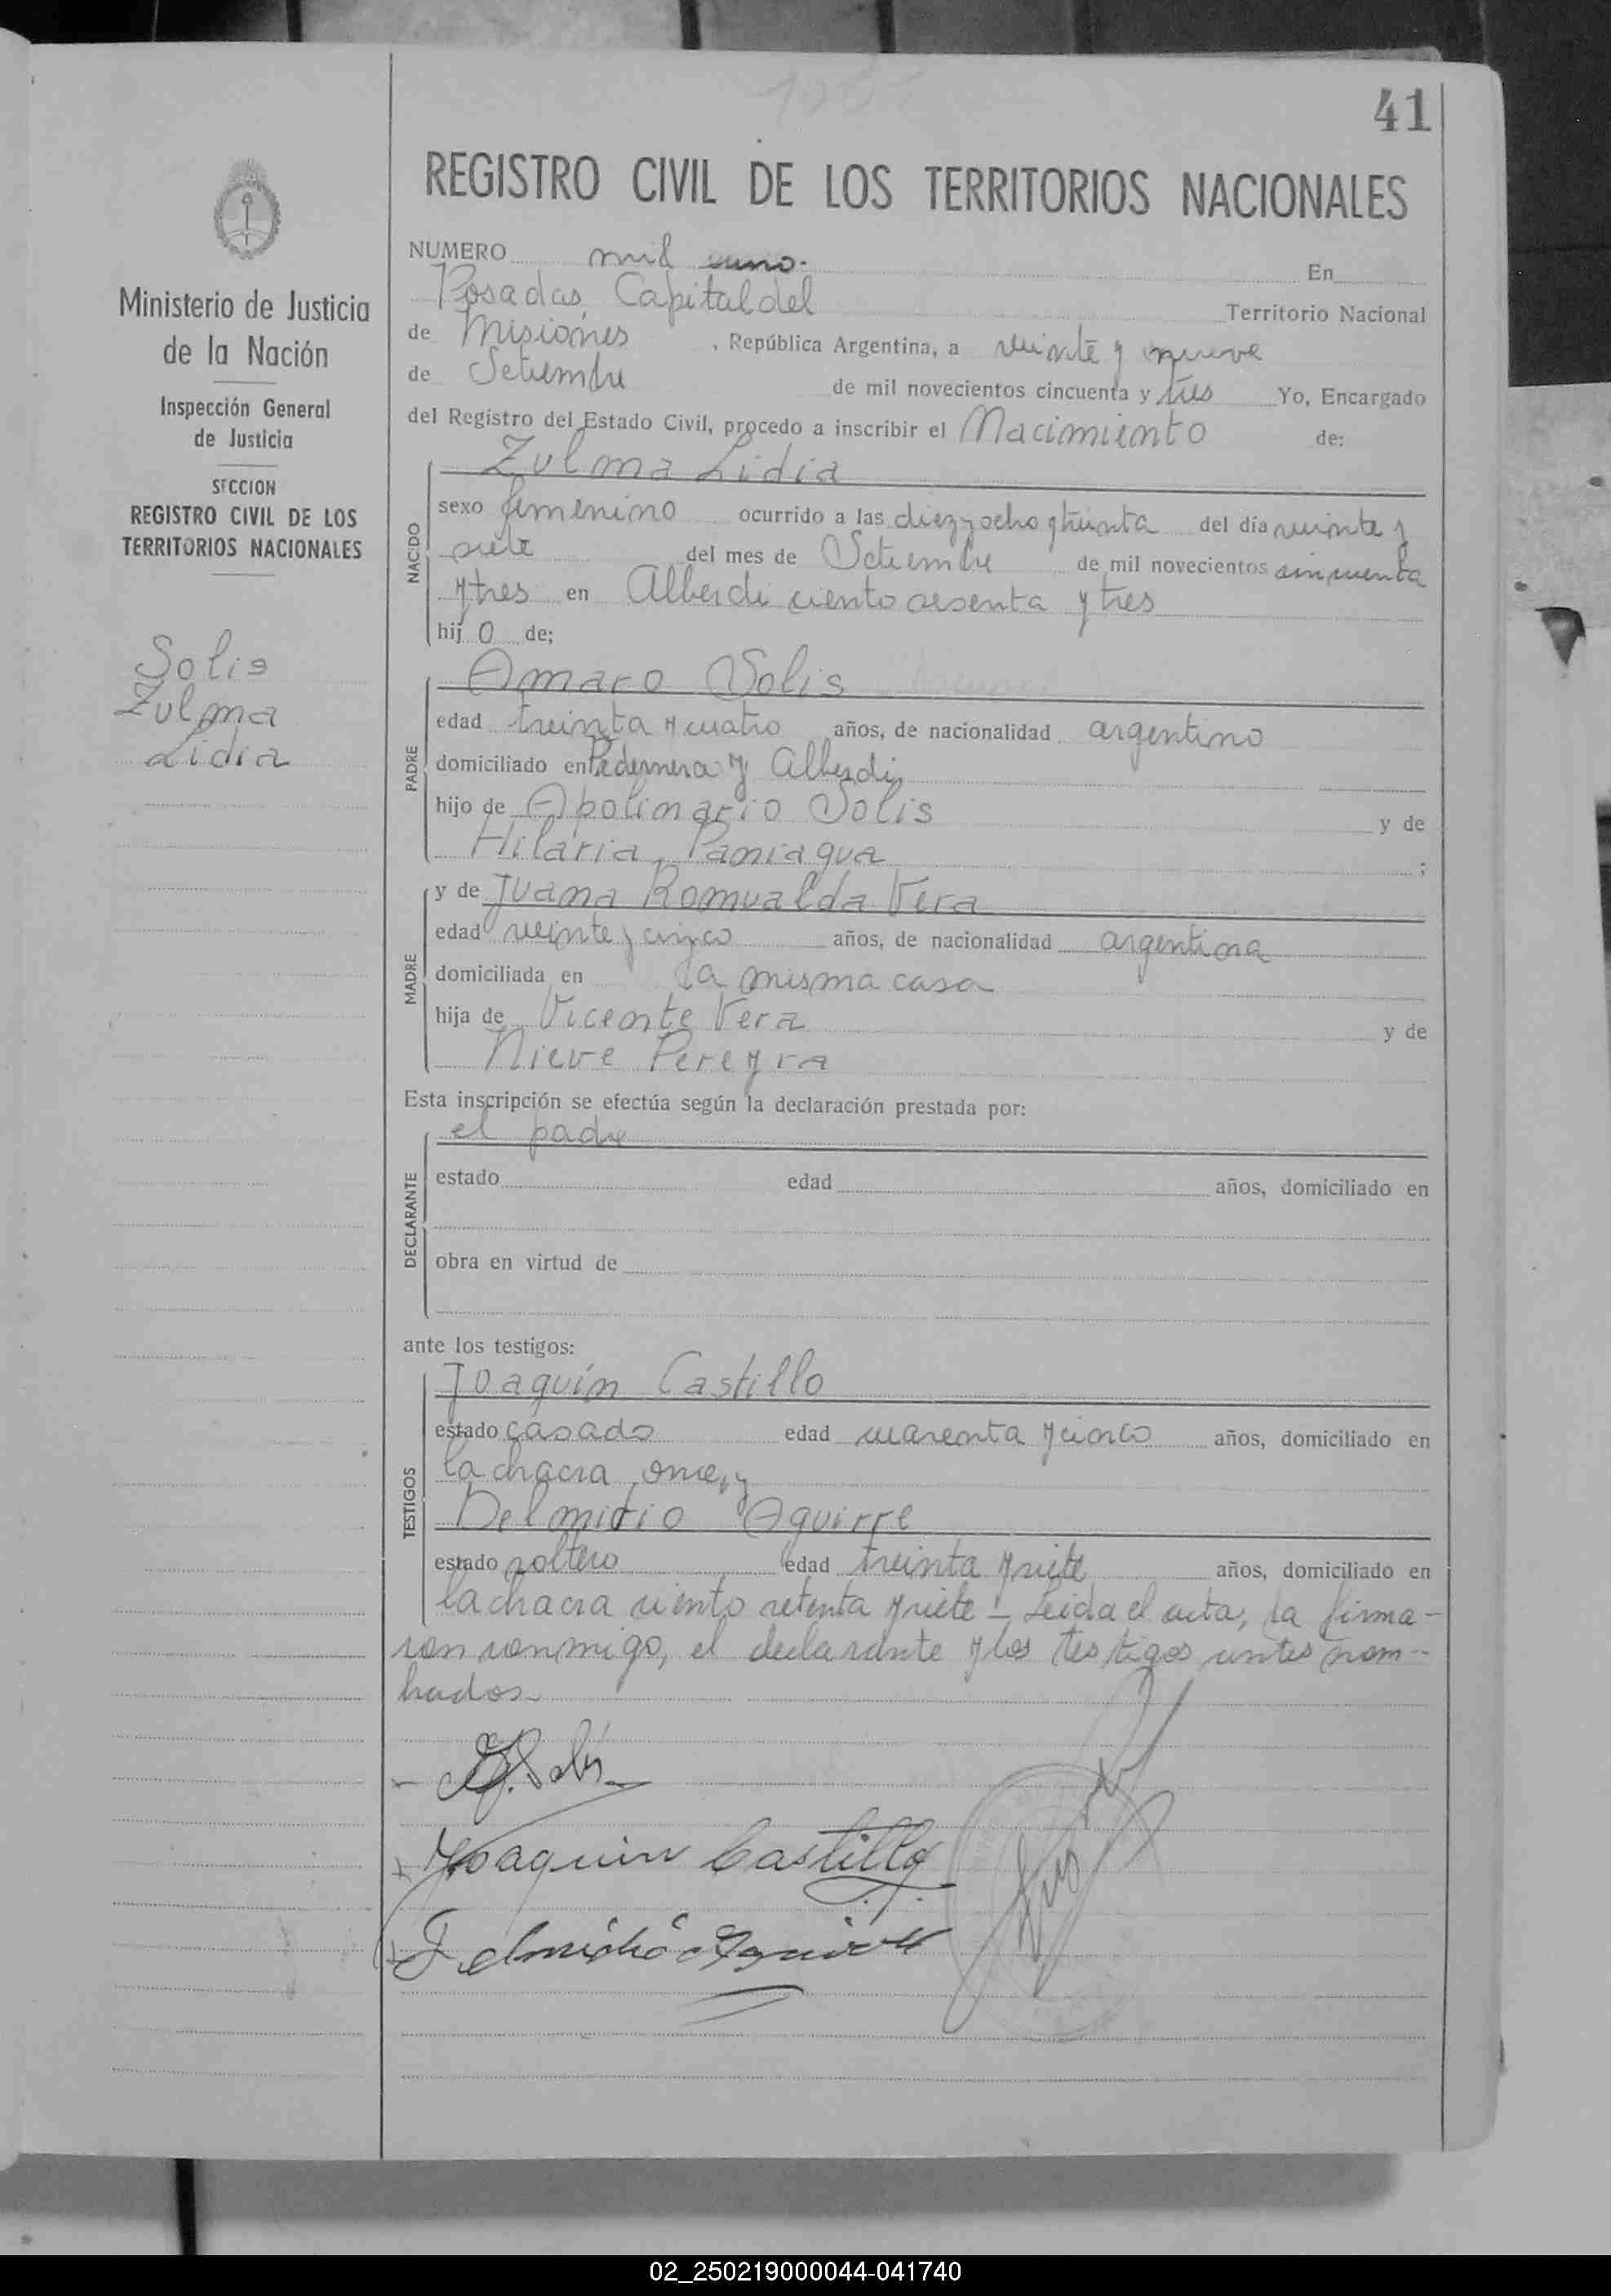 41
REGISTRO CIVIL DE LOS TERRITORIOS NACIONALES
Ministerio de Justicia
de la Nación
Inspección General
de Justicia
SECCION
REGISTRO CIVIL DE LOS
TERRITORIOS NACIONALES
Solis
Zulma
Lidia
NUMERO mil uno. En
Posadas, Capital del Territorio Nacional
de Misiones, República Argentina, a veinte y nueve
de Setiembre de mil novecientos cincuenta y tres Yo, Encargado
del Registro del Estado Civil, procedo a inscribir el Nacimiento de:
NACIDO
Zulma Lidia
sexo femenino ocurrido a las diez y ocho y treinta del día veinte y
siete del mes de Setiembre de mil novecientos cincuenta
y tres en Alberdi ciento sesenta y tres
hij o de;
PADRE
Amaro Solis
edad treinta y cuatro años, de nacionalidad argentino
domiciliado en Pedernera y Alberdi
hijo de Apolinario Solis y de
Hilaria Paniagua ;
MADRE
y de Juana Romualda Vera
edad veinte y cinco años, de nacionalidad argentina
domiciliada en la misma casa
hija de Vicente Vera y de
Nieve Pereyra
Esta inscripción se efectúa según la declaración prestada por:
DECLARANTE
el padre
estado edad años, domiciliado en
obra en virtud de
ante los testigos:
TESTIGOS
Joaquín Castillo
estado casado edad cuarenta y cinco años, domiciliado en
la chacra once, y
Delmidio Aguirre
estado soltero edad treinta y siete años, domiciliado en
la chacra ciento setenta y siete - Leida el acta, la firma-
ron conmigo, el declarante y los testigos antes nom-
brados.
A. Solis
Joaquin Castillo
Delmidio Aguirre
02_250219000044-041740